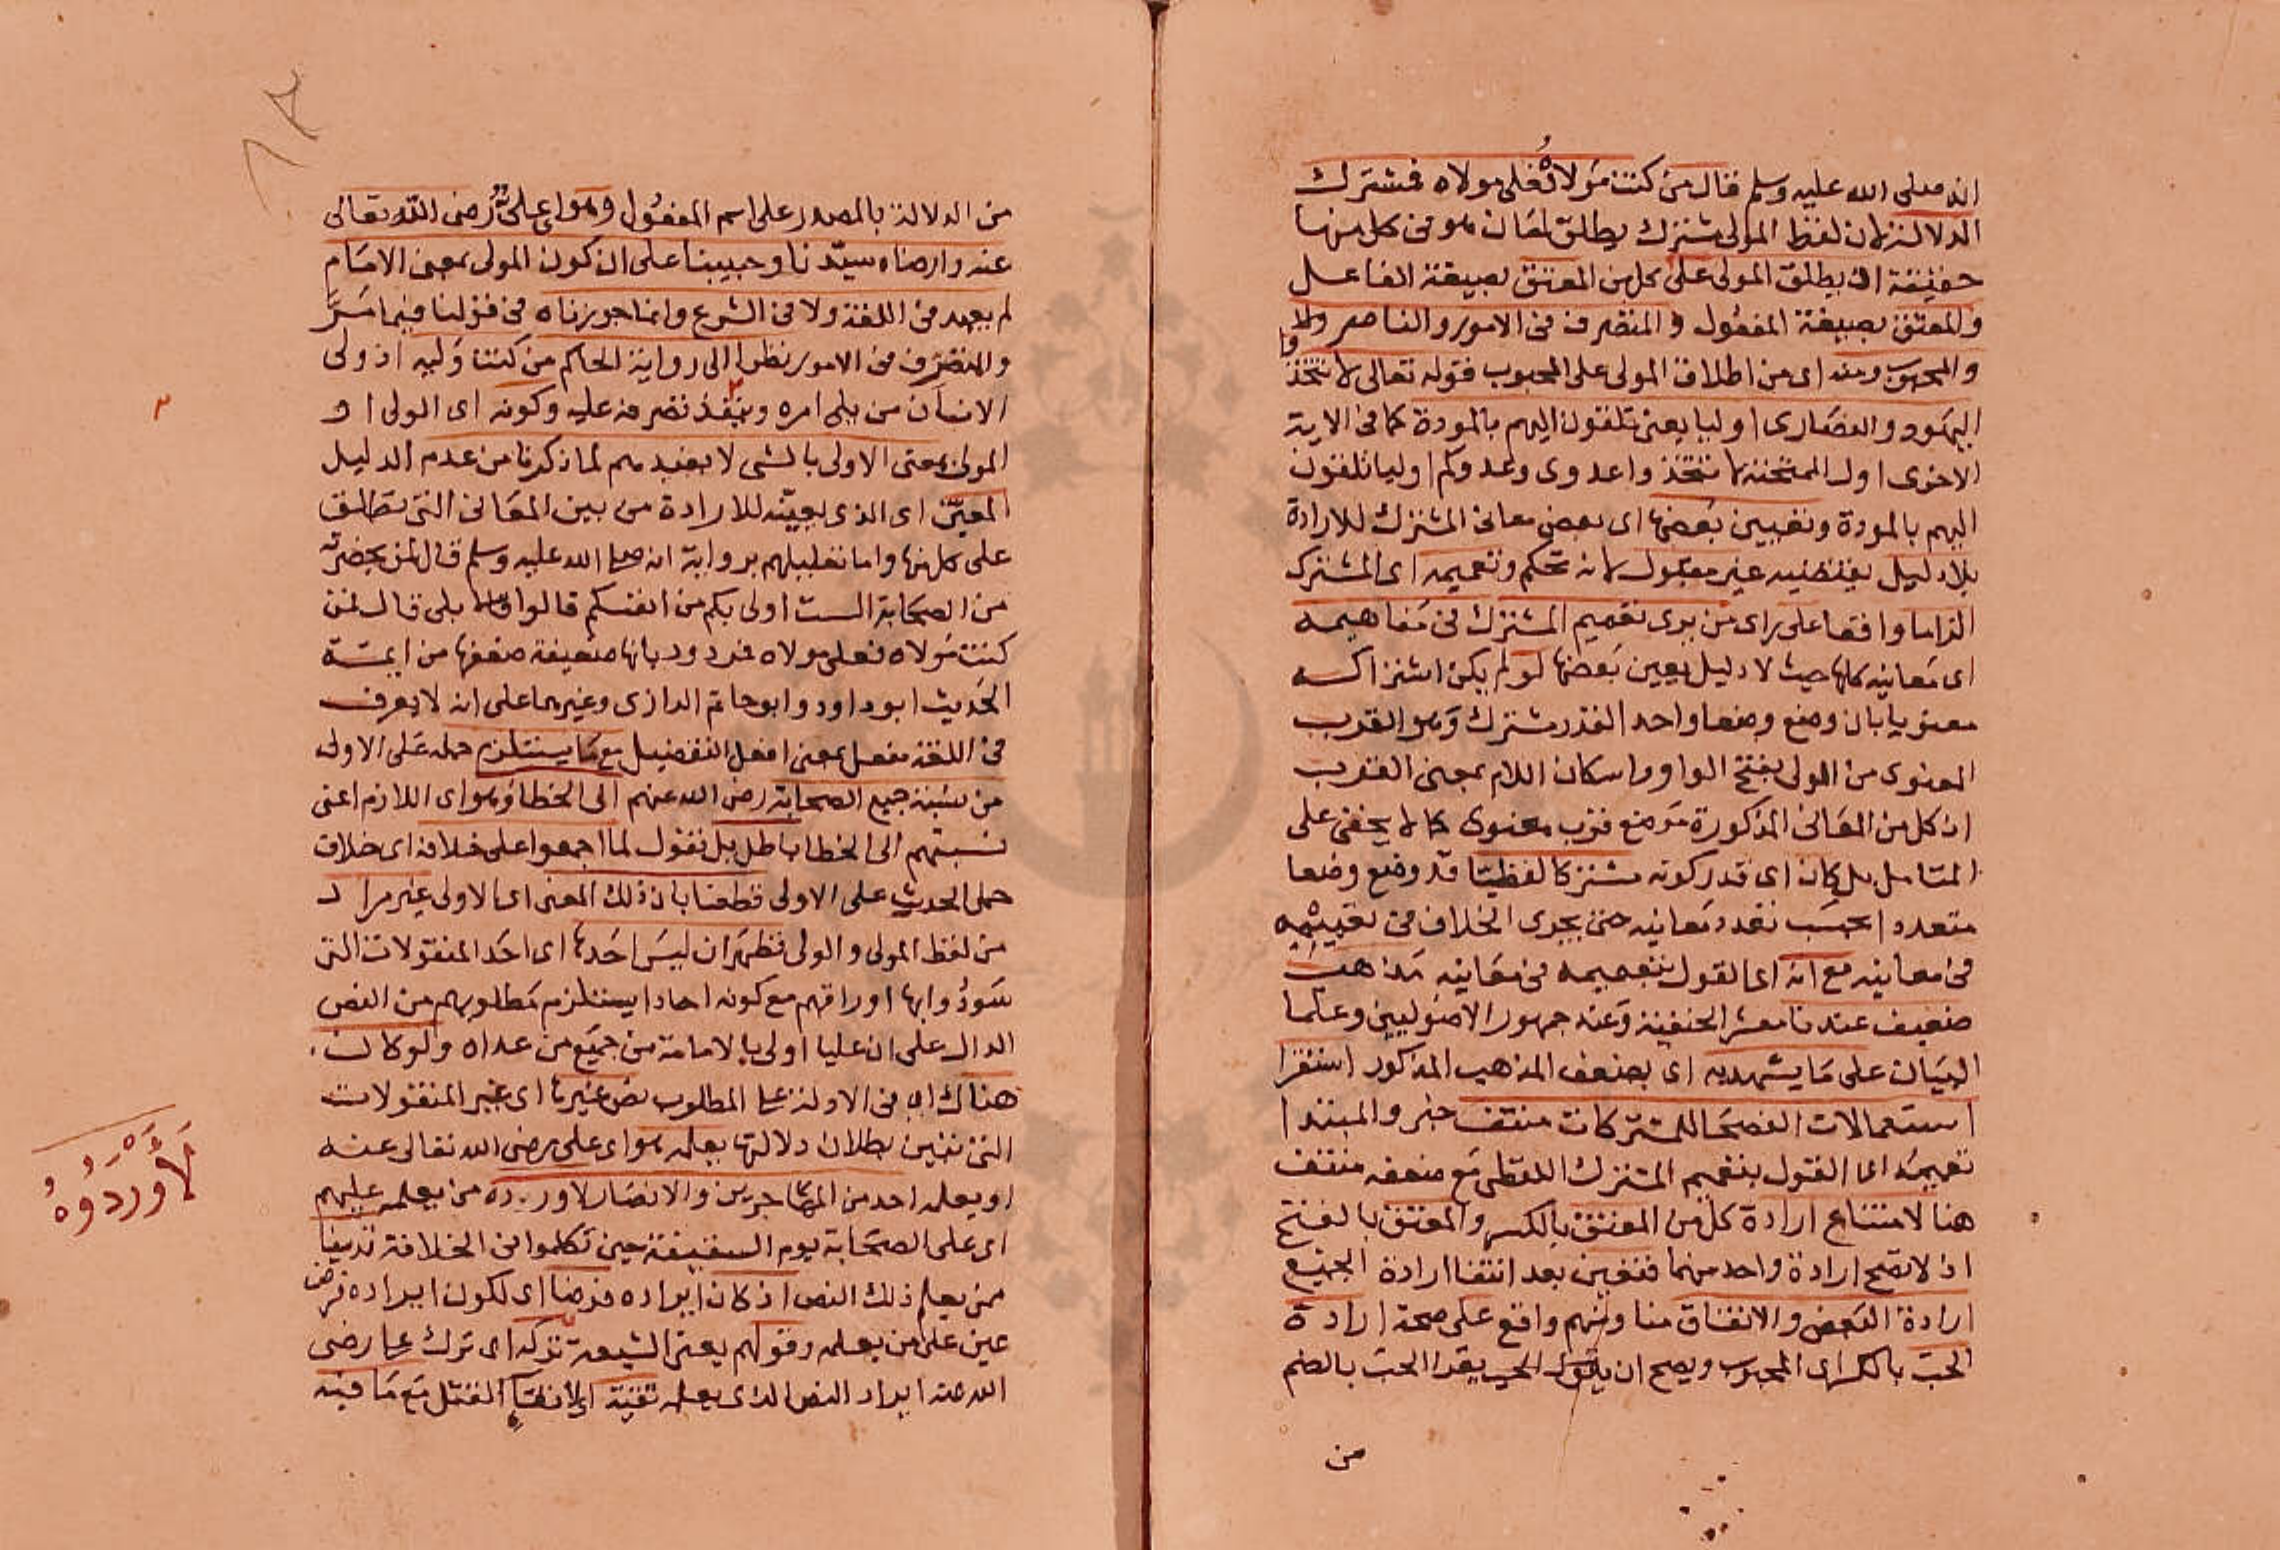 انه صلى الله عليه وسلم قال من كنت مولاه فعلى مولاه فمشترك
الدلالة لان لفظ المولى مشترك يطلق لمعان هو فى كل منها
حقيقة اذ يطلق المولى على كل من المعتق بصيغة الفاعل
والمعتق بصيغة المفعول والمتصرف فى الامور والناصر
والمحبوب ومنه اى من اطلاق المولى على المحبوب قوله تعالى لا تتخذوا
اليهود والنصارى اوليا يعنى تلقون اليهم بالمودة كما فى الاية
الاخرى اول الممتحنة لا تتخذوا عدوى وعدوكم اوليا تلقون
اليهم بالمودة وتعيين بعضها اى بعض معانى المشترك للارادة
بلا دليل يقتضيه غير مقبول لانه تحكم وتعميمه اى المشترك
الزاما وافقا على راى من يرى تعميم المشترك فى مفاهيمه
اى معانيه كلها حيث لا دليل يعين بعضها لو لم يكن اشتراكه
معنويا بان وضع وضعا واحد القدر مشترك وهو القرب
المعنوى من الولى بفتح الواو واسكان اللام بمعنى القرب
اذ كل من المعانى المذكورة موضع قرب معنوى كما لا يخفى على
المتامل بل كان اى قدر كونه مشتركا لفظيا قد وضع وضعا
متعددا بحسب تعدد معانيه حتى يجرى الخلاف فى تعميمه
فى معانيه مع انه اى القول بتعميمه فى معانيه مذاهب
ضعيف عندنا معشر الحنفية وعند جمهور الاصوليين وعلما
البيان على ما يشهد به اى بضعف المذهب المذكور استقرا
استعمالات الفصحا للمشتركات منتف خبر والمبتدا
تعميمه اى القول بتعميم المشترك اللفظى مع ضعفه منتف
هنا لامتناع ارادة كل من المعتق بالكسر والمعتق بالفتح
اذ لا تصح ارادة واحد منهما فتعين بعد انتفا ارادة الجميع
ارادة البعض والاتفاق منا ومنهم واقع على صحة ارادة
الحب بالكسر اى المحبوب ويصح ان يقرا الحب بالضم
من
من الدلالة بالمصدر على اسم المفعول وهو اى على رضى الله تعالى
عنه وارضاه سيدنا وحبيبنا على ان كون المولى بمعنى الامام
لم يعهد فى اللغة ولا فى الشرع وانما جوزناه فى قولنا فيما مر
والمتصرف فى الامور نظرا الى رواية الحاكم من كنت وليه اذ ولى
الانسان من يلى امره وينفذ تصرفه عليه وكونه اى الولى او
المولى بمعنى الاولى بالشى لا يفيدهم لما ذكرنا من عدم الدليل
المعين اى الذى يعينه للارادة من بين المعانى التى تطلق
على كل منها واما تعليلهم برواية انه صلى الله عليه وسلم قال لمن بحضرته
من الصحابة الست اولى بكم من انفسكم قالوا بلى قال فمن
كنت مولاه فعلى مولاه فمردود بانها ضعيفة ضعفها من ايمة
الحديث ابو داود وابو حاتم الرازى وغيرهما على انه لا يعرف
فى اللغة مفعل بمعنى افعل التفضيل مع ما يستلزم حمله على الاولى
من نسبة جميع الصحابة رضى الله عنهم الى الخطا وهو اى اللازم اعنى
نسبتهم الى الخطا باطل بل نقول لما اجمعوا على خلافه اى خلاف
حمل الحديث على الاولى قطعنا بان ذلك المعنى اى الاولى غير مراد
من لفظ المولى والولى فظهر ان ليس احدها اى احد المنقولات التى
سودوا بها اوراقهم مع كونه احادا يستلزم مطلوبهم من النص
الدال على ان عليا اولى بالامامة من جميع من عداه ولو كان
هناك اى فى الادلة على المطلوب نص غيرها اى غير المنقولات
التى تبين بطلان دلالتها يعلمه هو اى على رضى الله تعالى عنه
او يعلمه احد من المهاجرين والانصار لاورده من يعلمه عليهم
اى على الصحابة يوم السقيفة حين تكلموا فى الخلافة تدينا
ممن يعلم ذلك النص اذ كان ايراده فرضا اى لكون ايراده فرض
عين على من يعلمه وقولهم يعنى الشيعة تركه اى ترك على رضى
الله عنه ايراد النص الذى يعلمه تقية اى لاتقا القتل مع ما فيه
لَأَوْرَدُوهُ